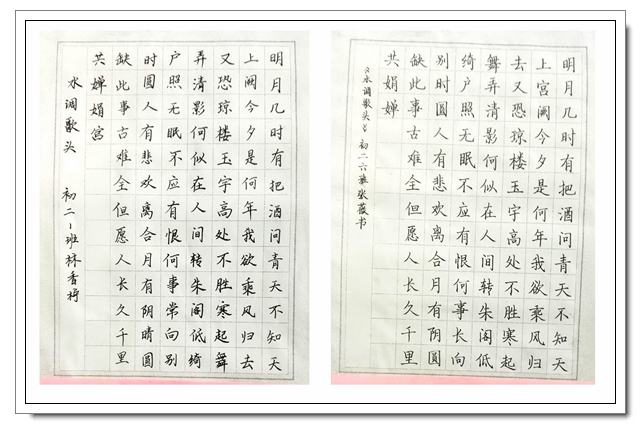 明月几时有把酒问青天不知天
上阙今夕是何年我欲乘风归去
又恐琼楼玉宇高处不胜寒起舞
弄清影何似在人间转朱阁低绮
户照无眠不应有恨何事常向别
时圆人有悲欢离合月有阴晴圆
缺此事古难全但愿人长久千里
共婵娟宫
水调歌头 初二1班林香
明月几时有把酒问青天不知天
上宫阙今夕是何年我欲乘风归
去又恐琼楼玉宇高处不胜寒起
舞弄清影何似在人间转朱阁低
绮户照无眠不应有恨何事长向
别时圆人有悲欢离合月有阴圆
缺此事古难全但愿人长久千里
共娟婵
《水调歌头》初二六班张薇书